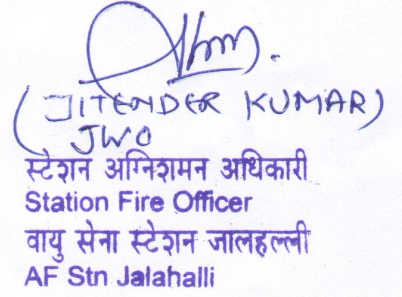 (JITENDER KUMAR)
JWO
स्टेशन अग्निशमन अधिकारी
Station Fire Officer
वायु सेना स्टेशन जालहल्ली
AF Stn Jalahalli